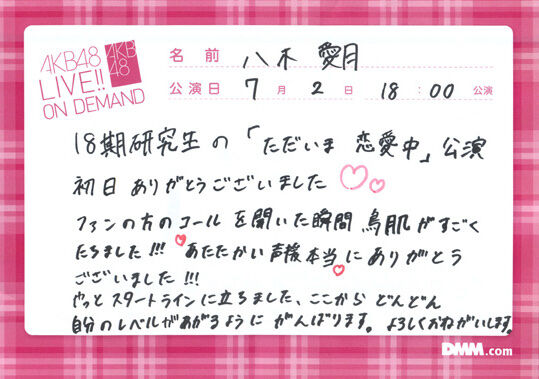 AKB48
LIVE!!
ON DEMAND
AKB
48
名前 八木 愛月
公演日 7月2日 18:00公演
18期研究生の「ただいま 恋愛中」公演
初日 ありがとうございました
ファンの方のコールを聞いた瞬間 鳥肌がすごく
たちました!!! あたたかい声援本当にありがとう
ございました!!!
やっとスタートラインに立ちました、ここから どんどん
自分のレベルがあがるように がんばります。よろしくおねがいします。
DMM.com